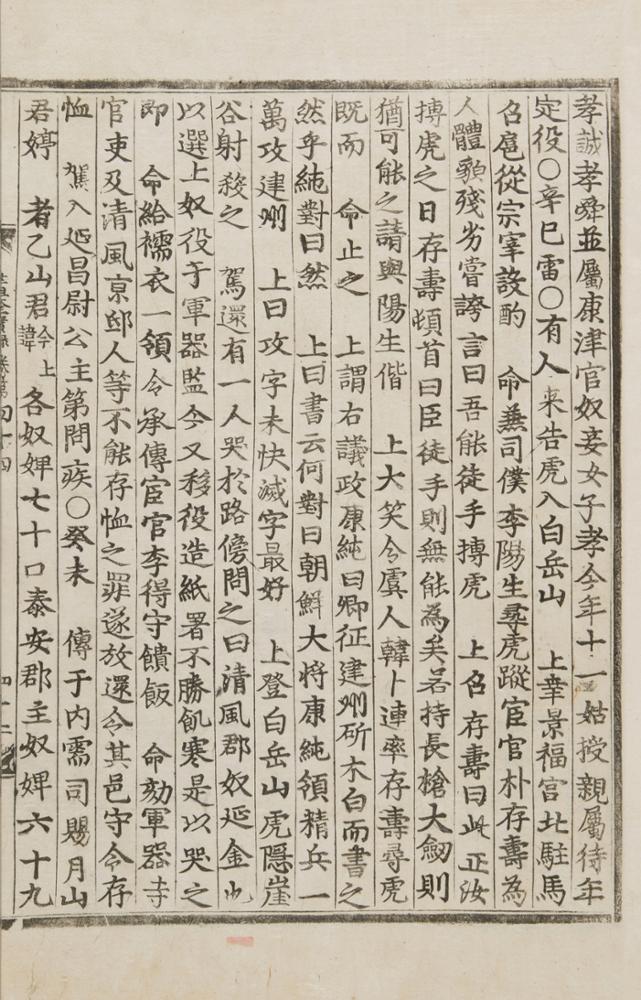 孝誠孝舜並屬康津官奴妾女子孝今年十一姑授親屬待年
定役○辛巳雷○有人來告虎入白岳山 上幸景福宮北駐馬
召扈從宗宰設酌 命兼司僕李陽生尋虎蹤宦官朴存壽為
人體貌殘劣嘗誇言曰吾能徒手搏虎 上召存壽曰此正汝
搏虎之日存壽頓首曰臣徒手則無能為矣若持長槍大劒則
猶可能之請與陽生偕 上大笑令虞人韓卜連率存壽尋虎
既而 命止之 上謂右議政康純曰卿征建州斫木白而書之
然乎純對曰然 上曰書云何對曰朝鮮大將康純領精兵一
萬攻建州 上曰攻字未快滅字最好 上登白岳山虎隱崖
谷射殺之 駕還有一人哭於路傍問之曰清風郡奴延金也
以選上奴役于軍器監今又移役造紙署不勝飢寒是以哭之
即 命給襦衣一領令承傳宦官李得守饋飯 命劾軍器寺
官吏及清風京邸人等不能存恤之罪遂放還令其邑守令存
恤 駕入延昌尉公主第問疾○癸未 傳于內需司賜月山
君婷 者乙山君今上諱各奴婢七十口泰安郡主奴婢六十九